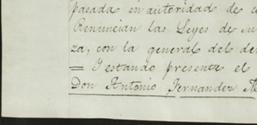 pasada en autoridad de
Renuncian las Leyes de su
za, con la general del de
= Y estando presente el
Don Antonio Fernandez